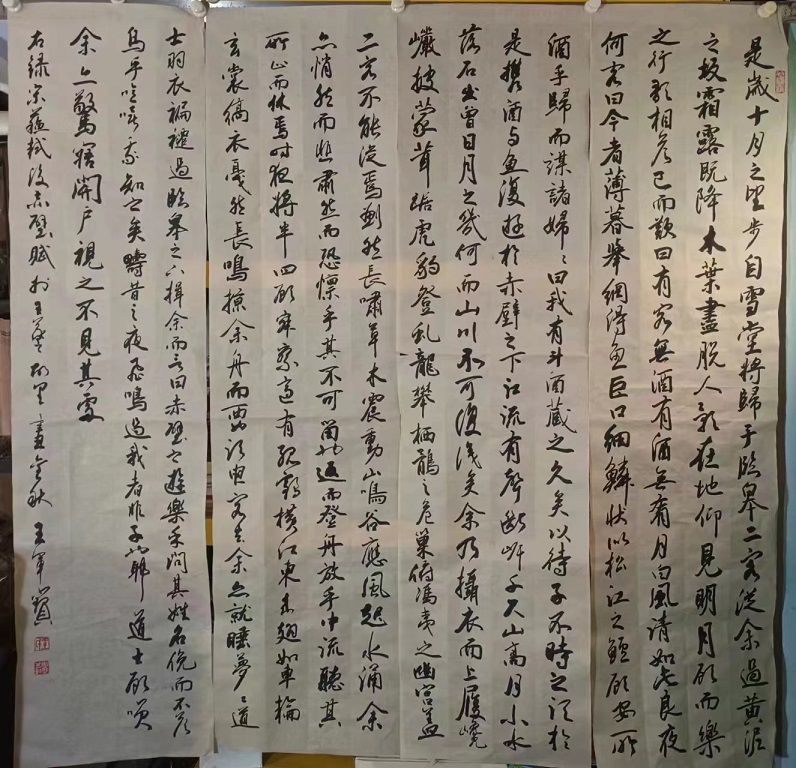 是歲十月之望步自雪堂將歸于臨皋二客從余過黃泥
之坂霜露既降木葉盡脫人影在地仰見明月顧而樂
之行歌相答已而歎曰有客無酒有酒無肴月白風清如此良夜
何客曰今者薄暮舉網得魚巨口細鱗狀似松江之鱸顧安所
酒乎歸而謀諸婦婦曰我有斗酒藏之久矣以待子不時之須於
是攜酒與魚復遊於赤壁之下江流有聲斷岸千尺山高月小水
落石出曾日月之幾何而山川不可復識矣余乃攝衣而上履巉
巖披蒙茸踞虎豹登虬龍攀栖鶻之危巢俯馮夷之幽宮蓋
二客不能從焉劃然長嘯草木震動山鳴谷應風起水涌余
亦悄然而悲肅然而恐懍乎其不可留也返而登舟放乎中流聽其
所止而休焉時夜將半四顧寂寥適有孤鶴橫江東來翅如車輪
玄裳縞衣戛然長鳴掠余舟而西也須臾客去余亦就睡夢一道
士羽衣褊褼過臨皋之下揖余而言曰赤壁之遊樂乎問其姓名俛而不答
烏乎噫嘻我知之矣疇昔之夜飛鳴過我者非子也耶道士顧笑
余亦驚寤開戶視之不見其處
右錄宋蘇軾後赤壁賦於 金秋 王軍